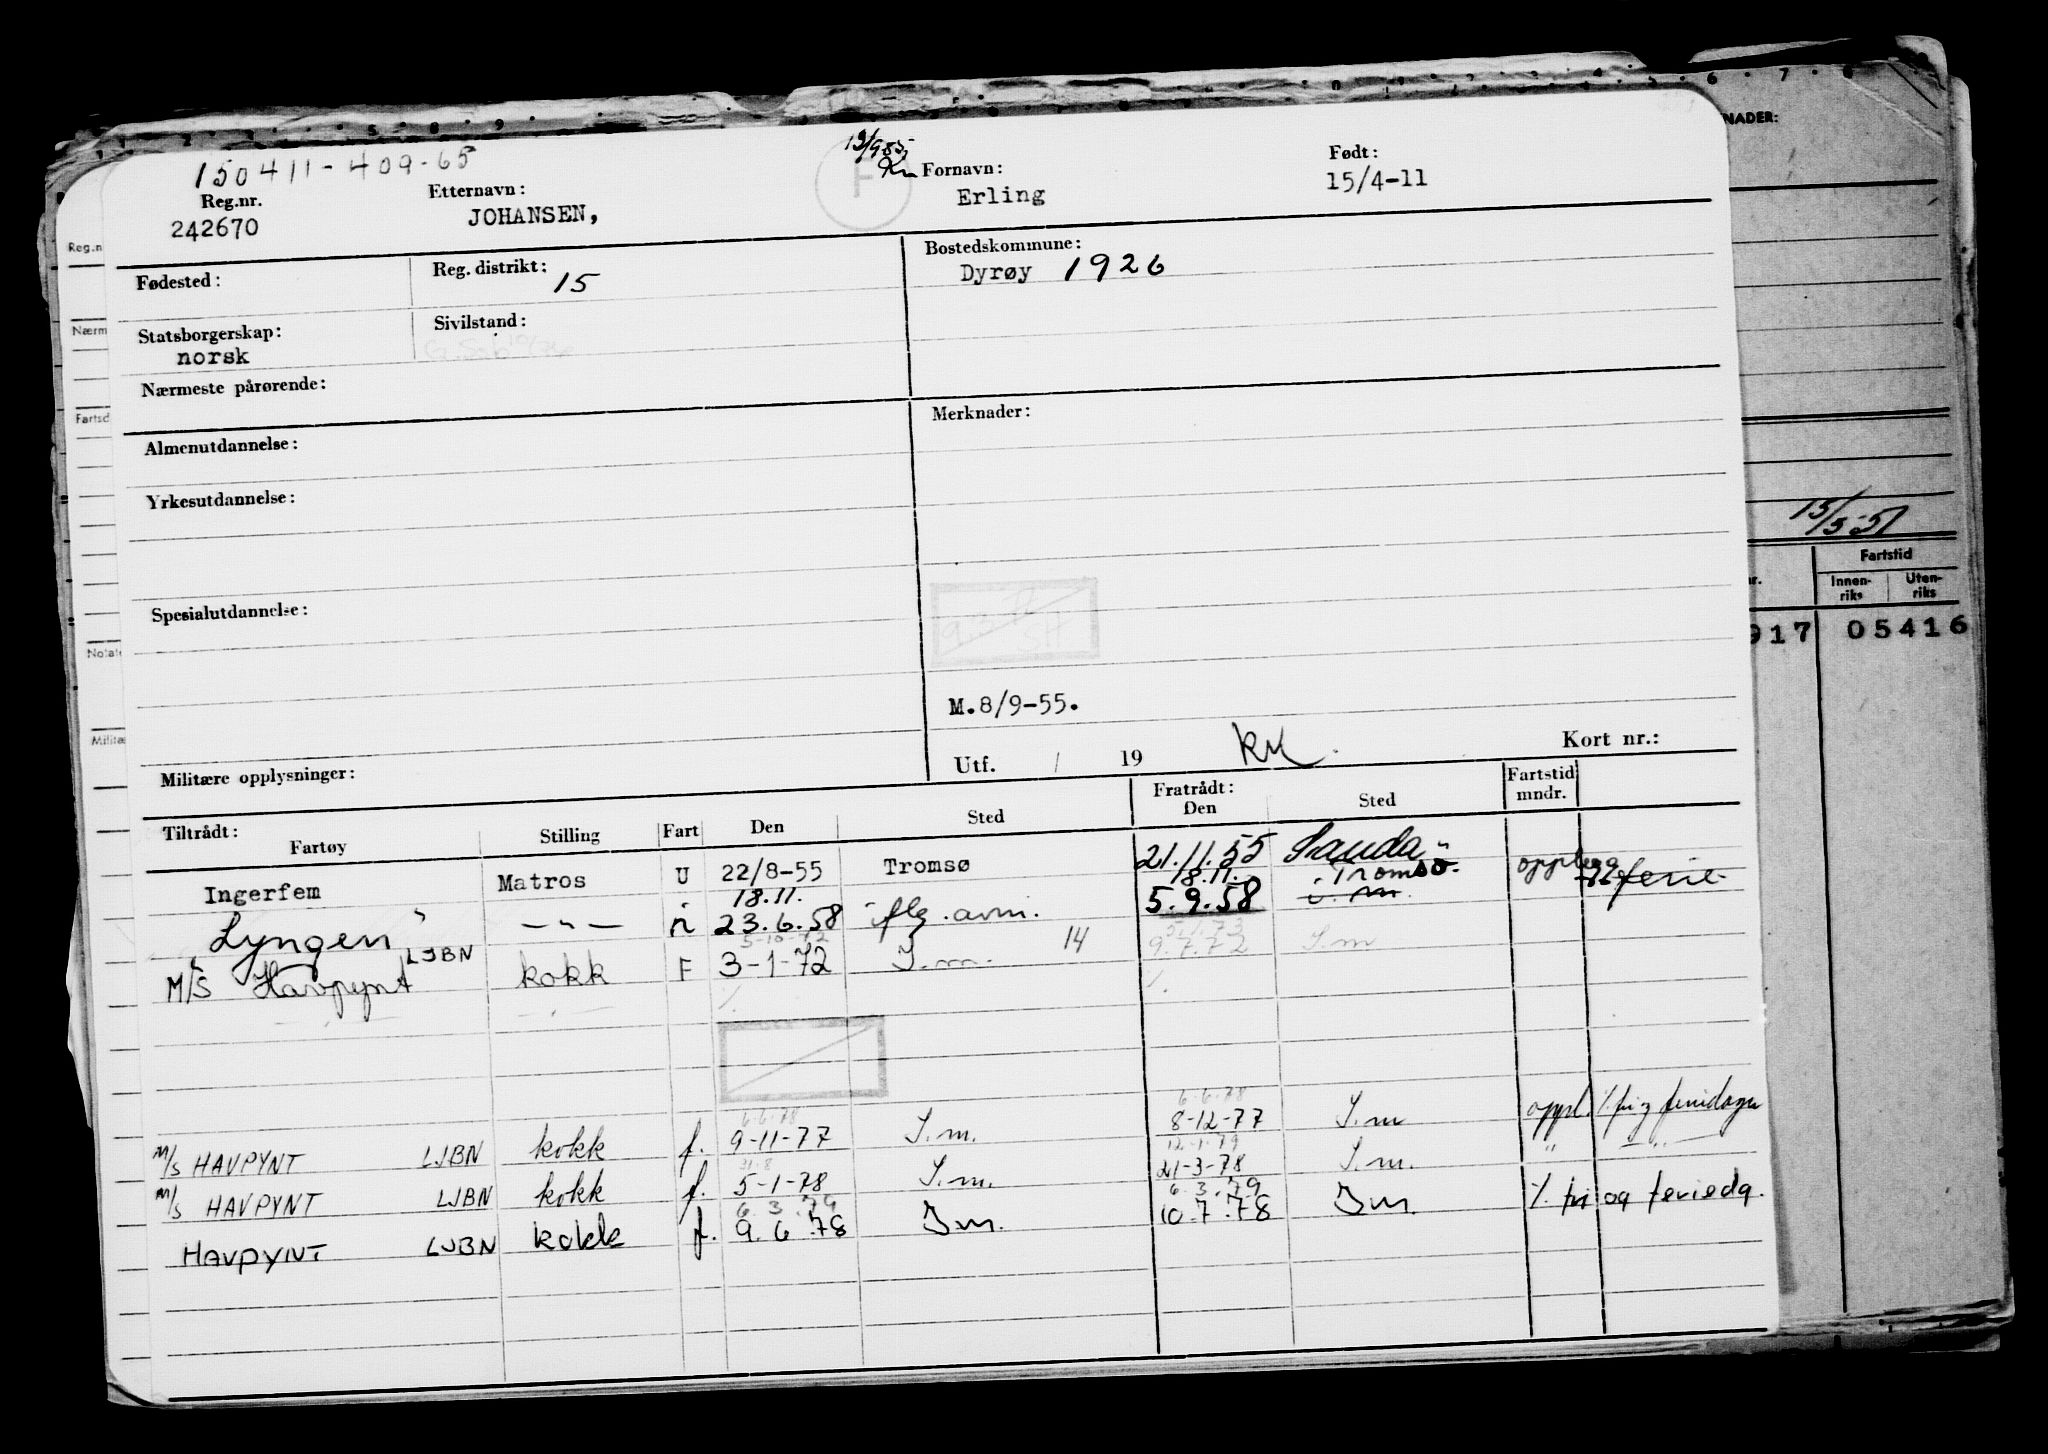 NADER:
150411-409-65
Reg.nr.
242670
Etternavn:
JOHANSEN,
F
Fornavn:
Erling
Født:
15/4-11
Reg.n
Fødested:
Reg. distrikt:
15
Bostedskommune:
Dyrøy 1926
Nærm
Statsborgerskap:
norsk
Sivilstand:
Nærmeste pårørende:
Fartsd
Almenutdannelse:
Merknader:
Yrkesutdannelse:
15/5-51
Fartstid
nr.
Innen-
riks
Uten-
riks
Spesialutdannelse:
917 05416
Notate
M.8/9-55.
Militæ
Militære opplysninger:
Utf. / 19
Kort nr.:
Tiltrådt:
Fartøy
Stilling
Fart
Den
Sted
Fratrådt:
Den
Sted
Fartstid
mndr.
Ingerfem Matros U 22/8-55 Tromsø 21.11.55 Sauda
18.11. 18.11. Tromsö
Lyngen — " — 23.6.58 iflg. avm. 5.9.58 ferie
5-10-72 5.1.73
M/S Havpynt LJBN kokk F 3-1-72 I.m. 14 9.7.72 I.m
6-6-78 6-6-78
M/S HAVPYNT LJBN kokk f. 9-11-77 I.m. 8-12-77 I.m oppl. %. fri og feriedager
31-8 12-1-79
M/S HAVPYNT LJBN kokk f. 5-1-78 I.m. 21-3-78 I.m. " — " —
6.3.79 6.3.79
HAVPYNT LJBN kokk f. 9.6.78 Im. 10.7.78 Im. %. fri og feriedg.